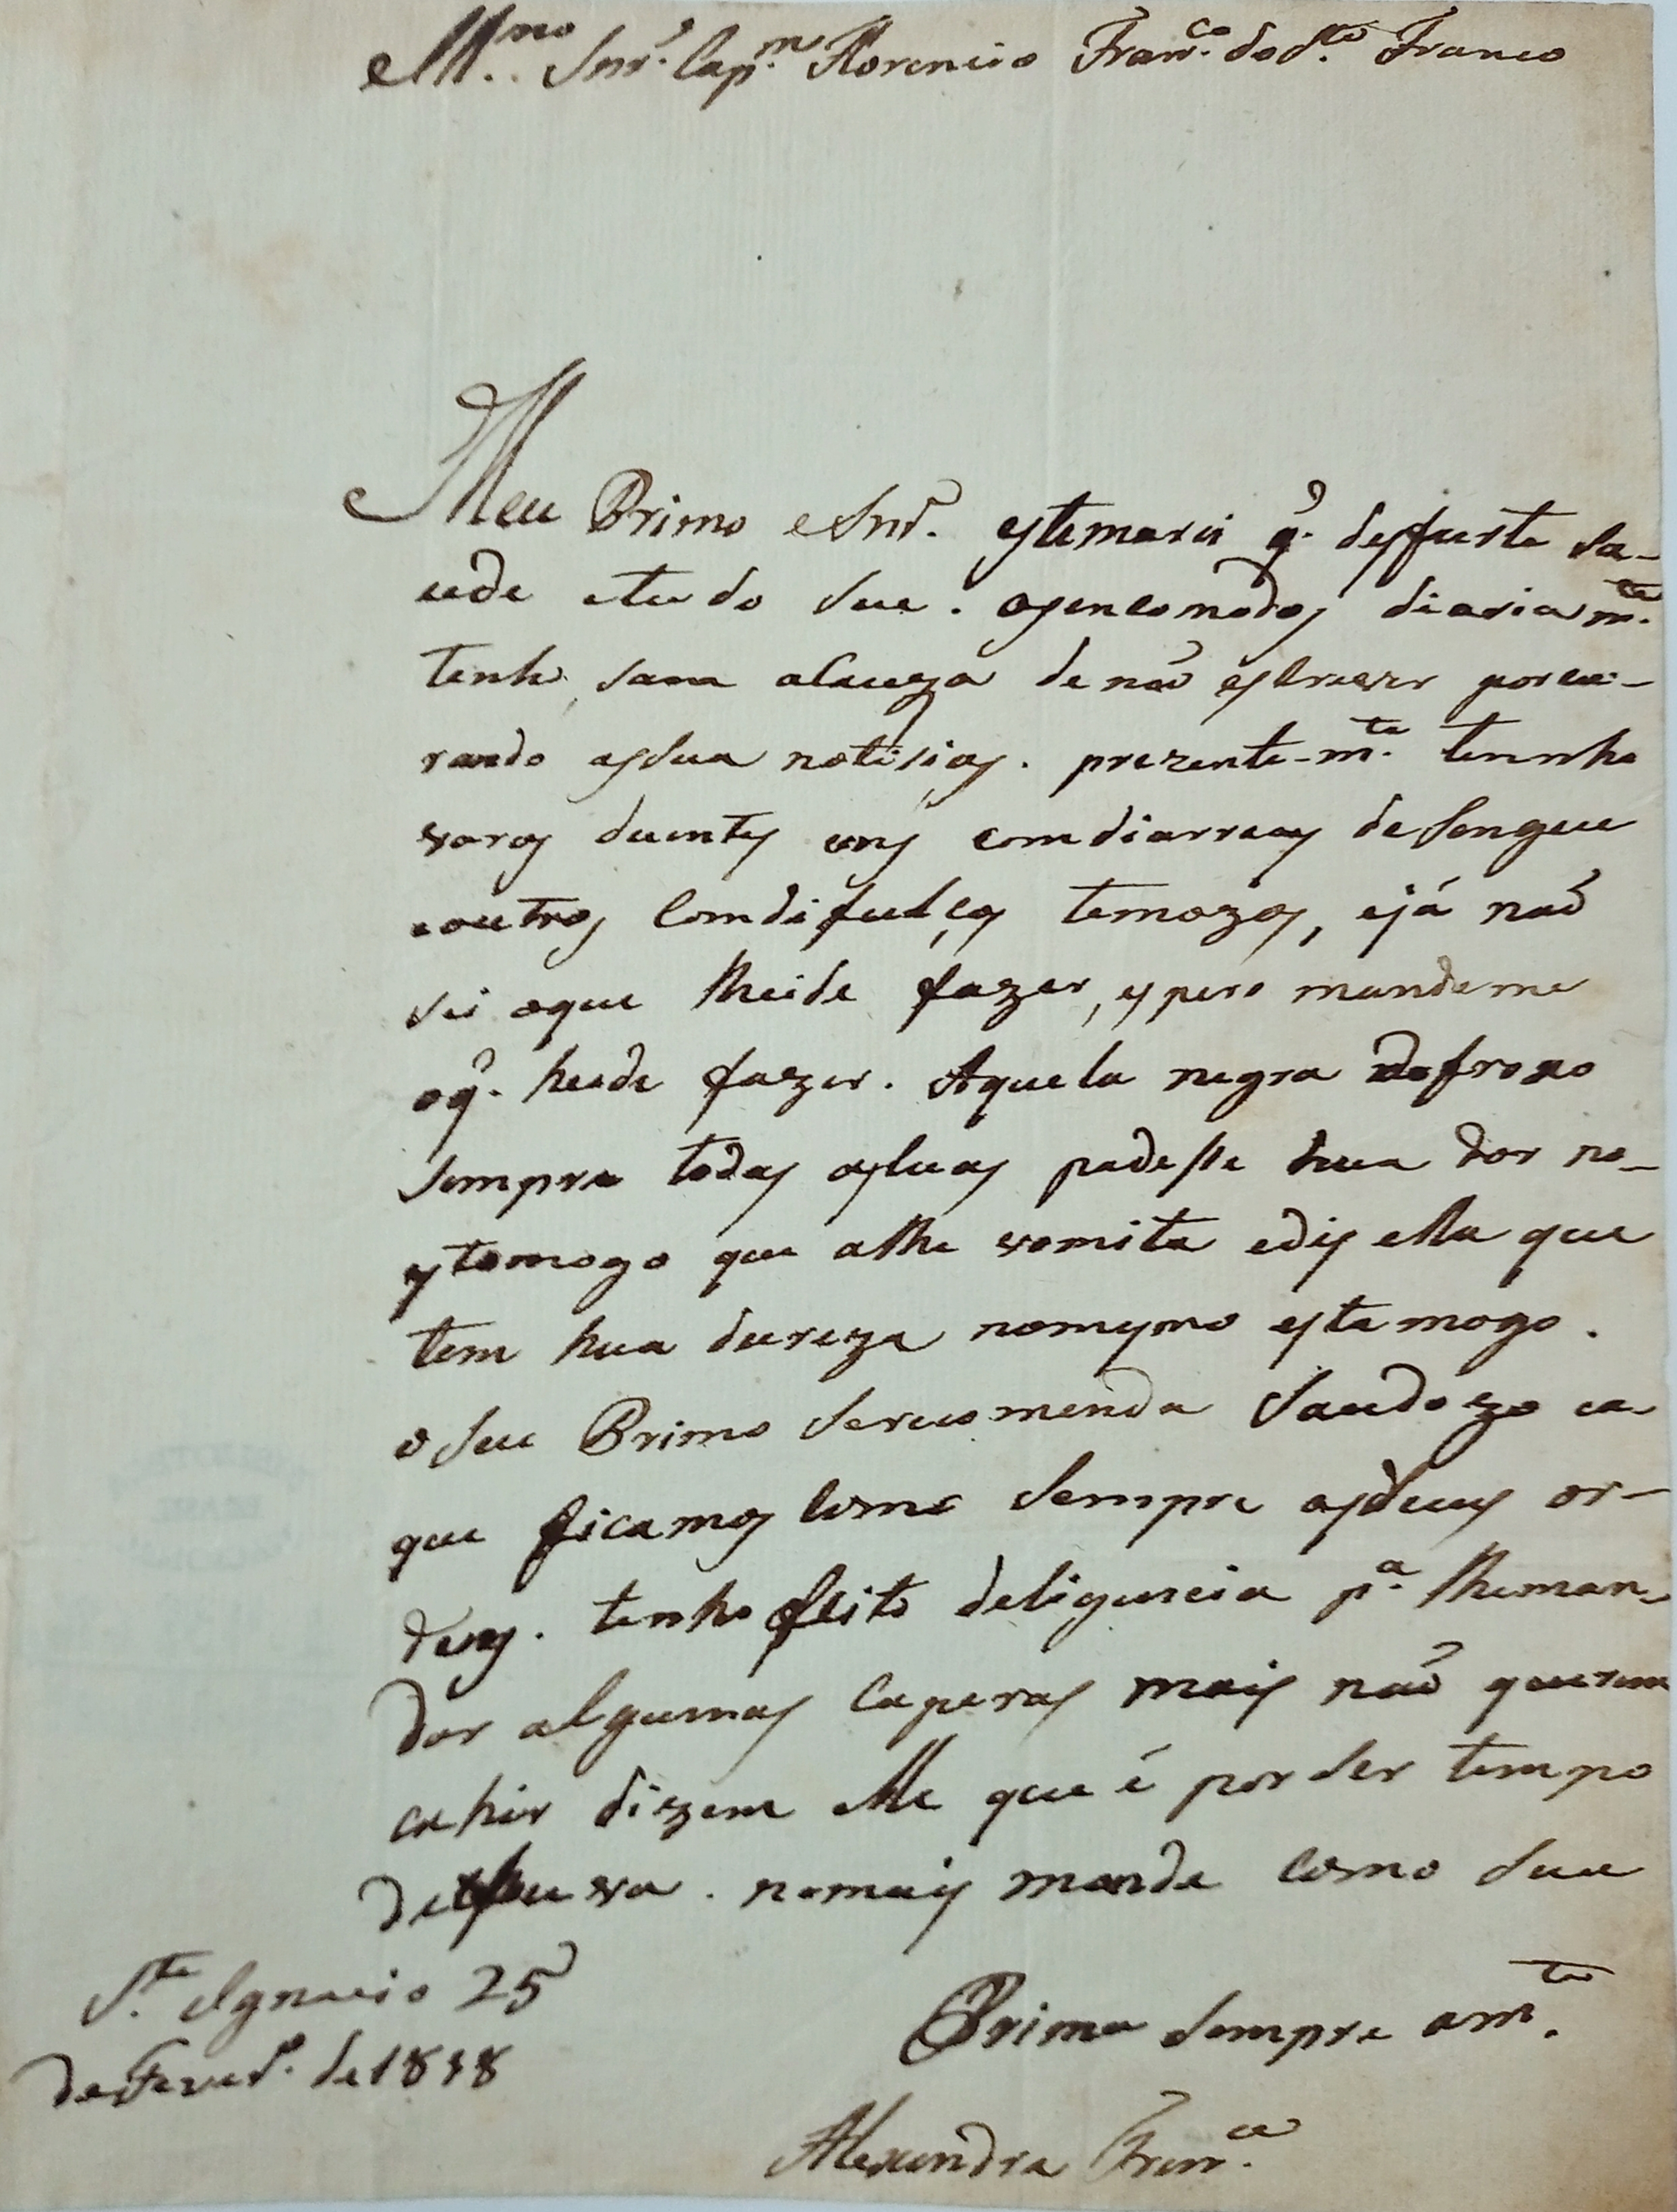 Mmo Snr. Capm. Florencio Franco. do Sto. Franco
Meu Primo eSnr. estemarei q. desfurte Sa-
ude etudo Seu. osencomodos diariamte.
tenho Sam alcuza de não esCrever porcu-
rando asSua notisias. prezente-mte. tennho
varos duentes uns comdiarreas deSangue
eoutros Comdifulças temozas, ejá não
Sei oque lheide fazer, espero mandeme
oq. heide fazer. Aquela negra
Sempre todas asluas padesse hua dor no-
estomogo que alhe vomita edis ella que
tem hua dureza nomesmo estamogo.
oSeu Primo Serecomenda Saudozo ea-
que ficamos Como Sempre asSuas or-
dens. tenho feito deligencia pa. lheman-
dar algumas Caperas mais não querem
cahir dizem elle que é por Ser tempo
dexhuva. nomais mande Como Sua
Prima Sempre amte.
Alexandra Franca.
Sto. Ignacio 25
deFevero. de 1838